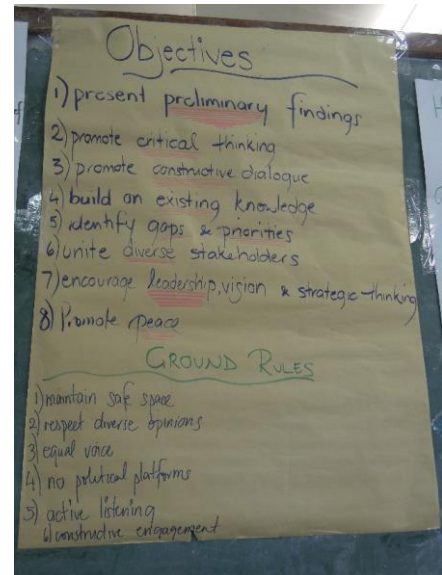 Objectives
1) present preliminary findings
2) promote critical thinking
3) promote constructive dialogue
4) build on existing knowledge
5) identify gaps & priorities
6) unite diverse stakeholders
7) encourage leadership, vision & strategic thinking
8) Promote peace
GROUND RULES
1) maintain safe space
2) respect diverse opinions
3) equal voice
4) no political platforms
5) active listening
6) constructive engagement